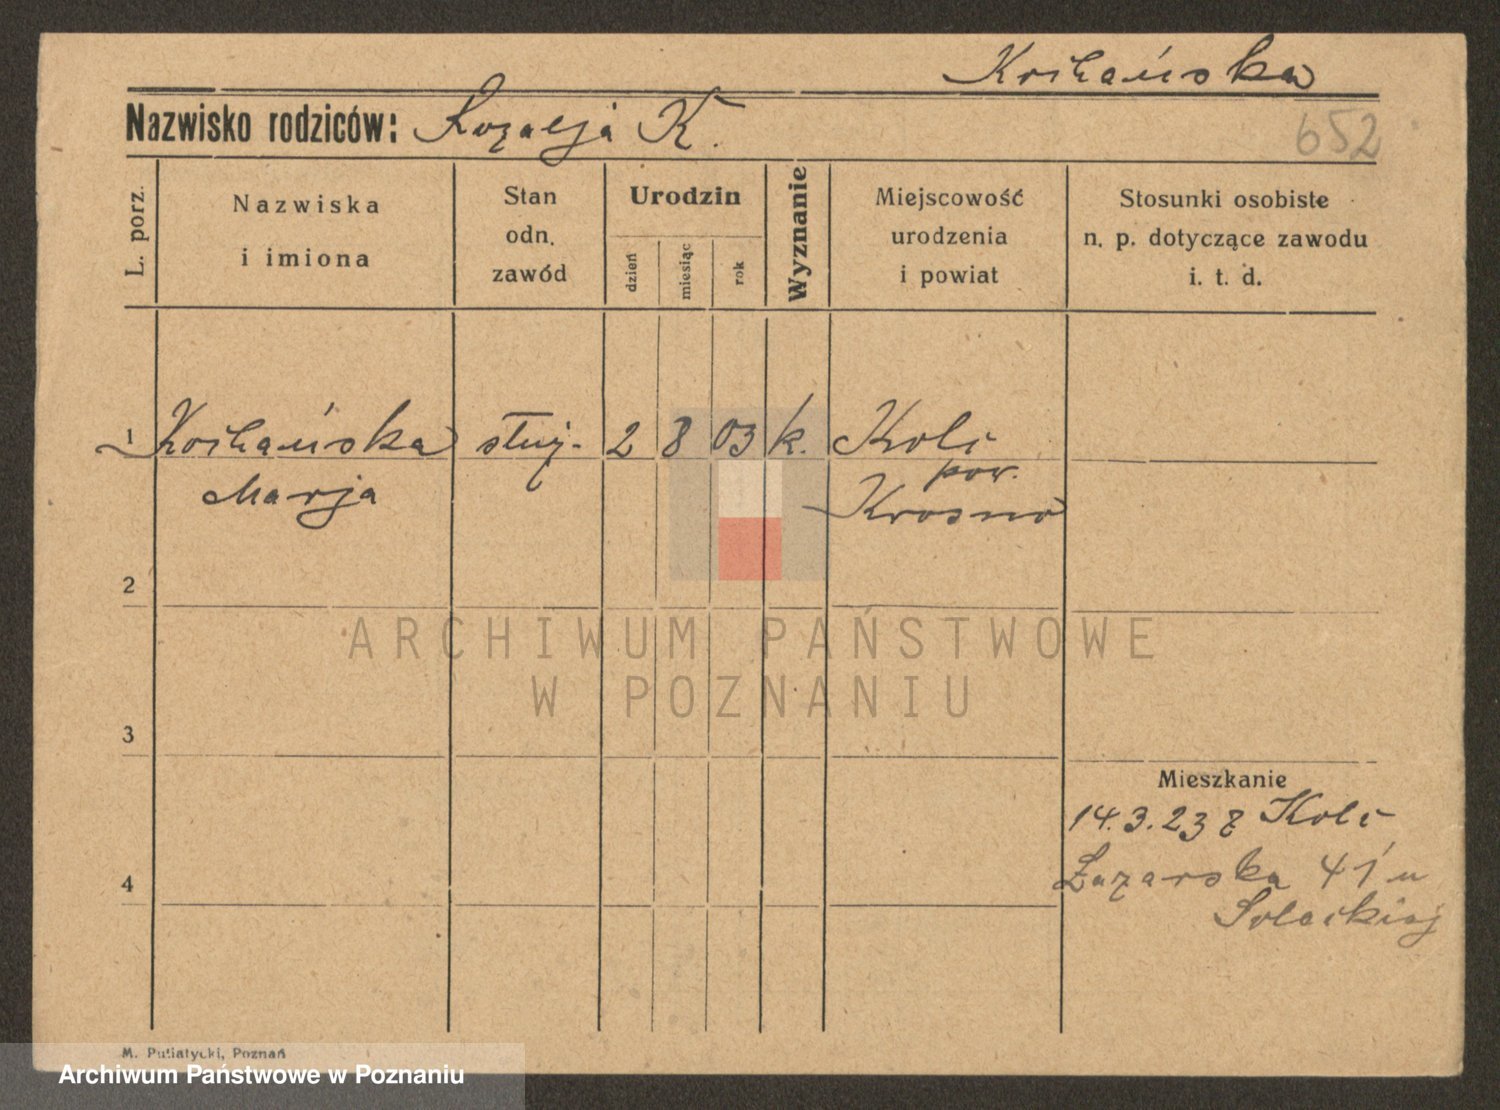 Kochańska
Nazwisko rodziców: Rozalja K.
652
L. porz.
Nazwiska
i imiona
Stan
odn.
zawód
Urodzin
dzień
miesiąc
rok
Wyznanie
Miejscowość
urodzenia
i powiat
Stosunki osobiste
n. p. dotyczące zawodu
i. t. d.
1 Kochańska służ. 2 8 03 k.
Marja
pow.
Krosno
2
3
4
Mieszkanie
14.3.23 z
Łazarska 41 u
Solackiej
ARCHIWUM PAŃSTWOWE
W POZNANIU
M. Putiatycki, Poznań
Archiwum Państwowe w Poznaniu